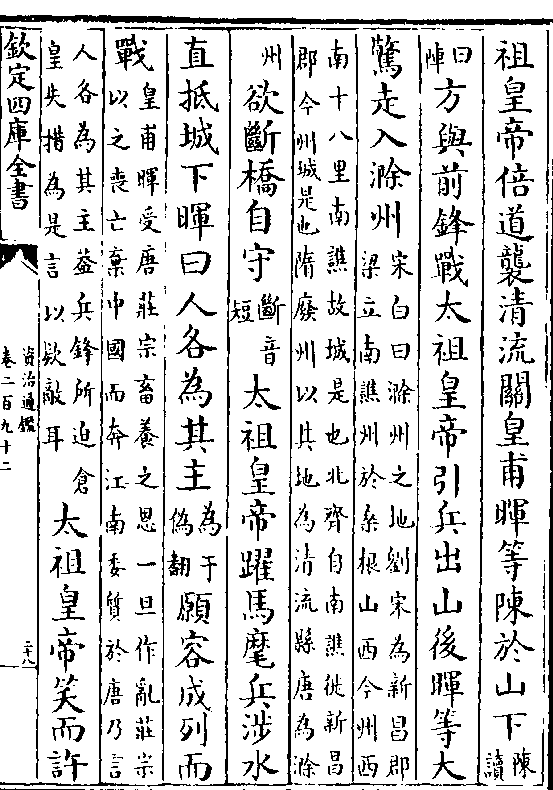 祖皇帝倍道襲清流關皇甫暉等陳於山下陳讀
曰陣方與前鋒戰太祖皇帝引兵出山後暉等大
驚走入滁州宋白曰滁州之地劉宋為新昌郡
梁立南譙州於桑根山西今州西
南十八里南譙故城是也北齊自南譙徙新昌
郡今州城是也隋廢州以其地為清流縣唐為滁
州欲斷橋自守斷音短太祖皇帝躍馬麾兵涉水
直抵城下暉曰人各為其主為于偽翻願容成列而
戰皇甫暉受唐莊宗畜養之恩一旦作亂莊宗
以之喪亡棄中國而奔江南委質於唐乃言
人各為其主蓋兵鋒所迫倉
皇失措為是言以欵敵耳太祖皇帝笑而許
欽定四庫全書
資治通鑑
卷二百九十二
二十八